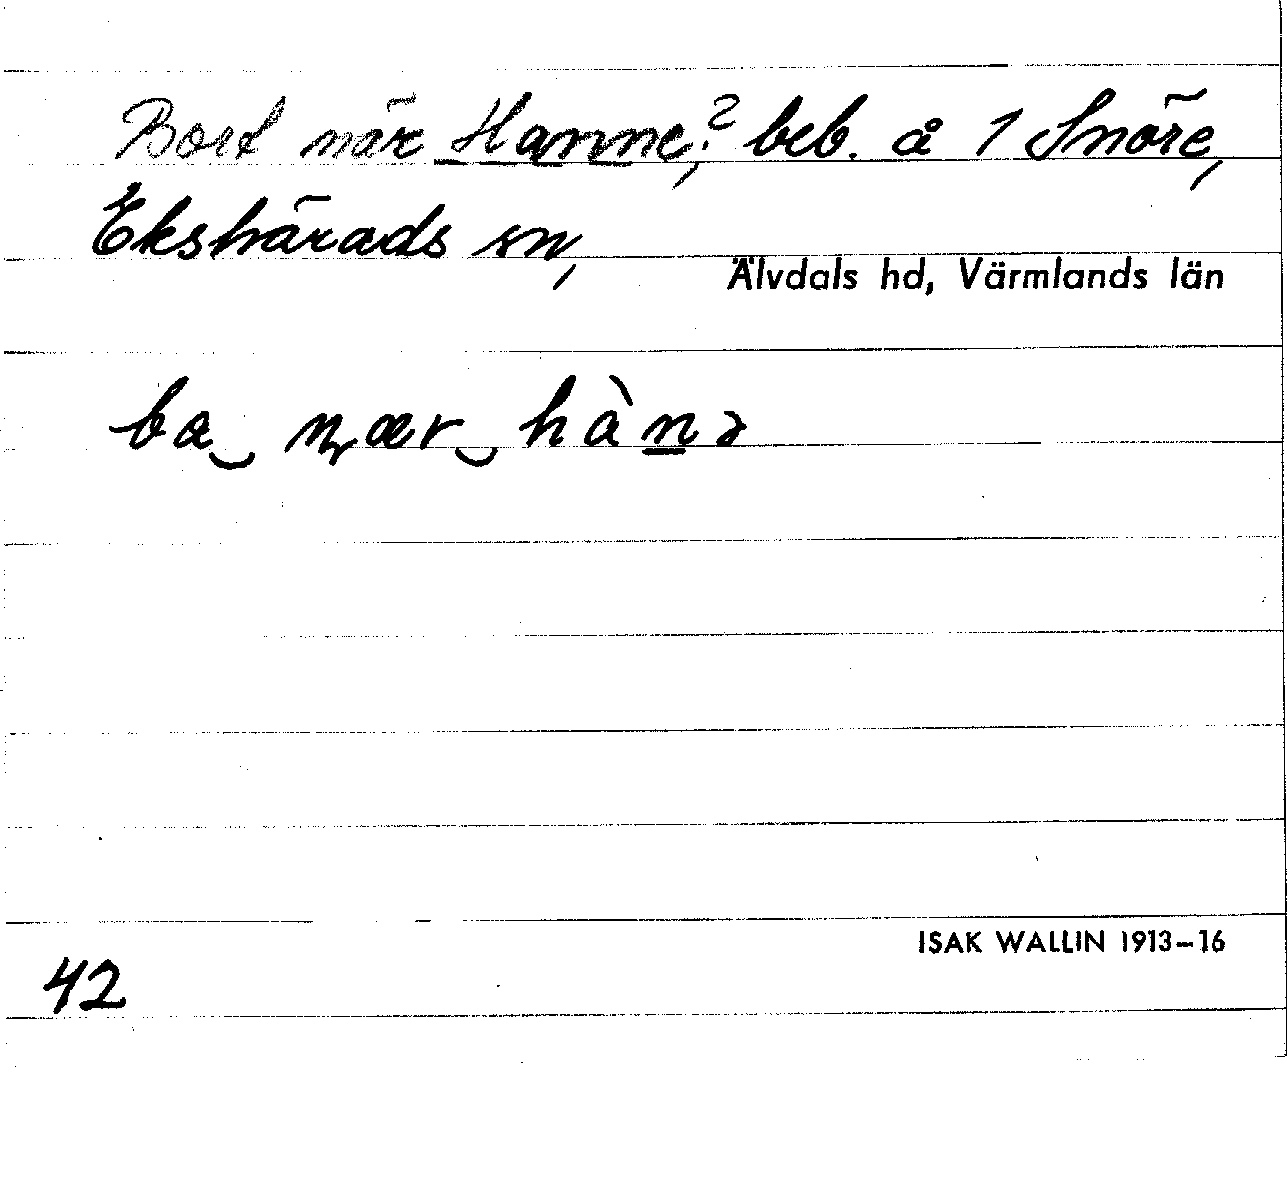 Bort när Hanne,? beb. å 1 Snöre,
Ekshärads sn,
Älvdals hd, Värmlands län
ba‿ n̡ær‿ hàn̲ə
ISAK WALLIN 1913–16
42